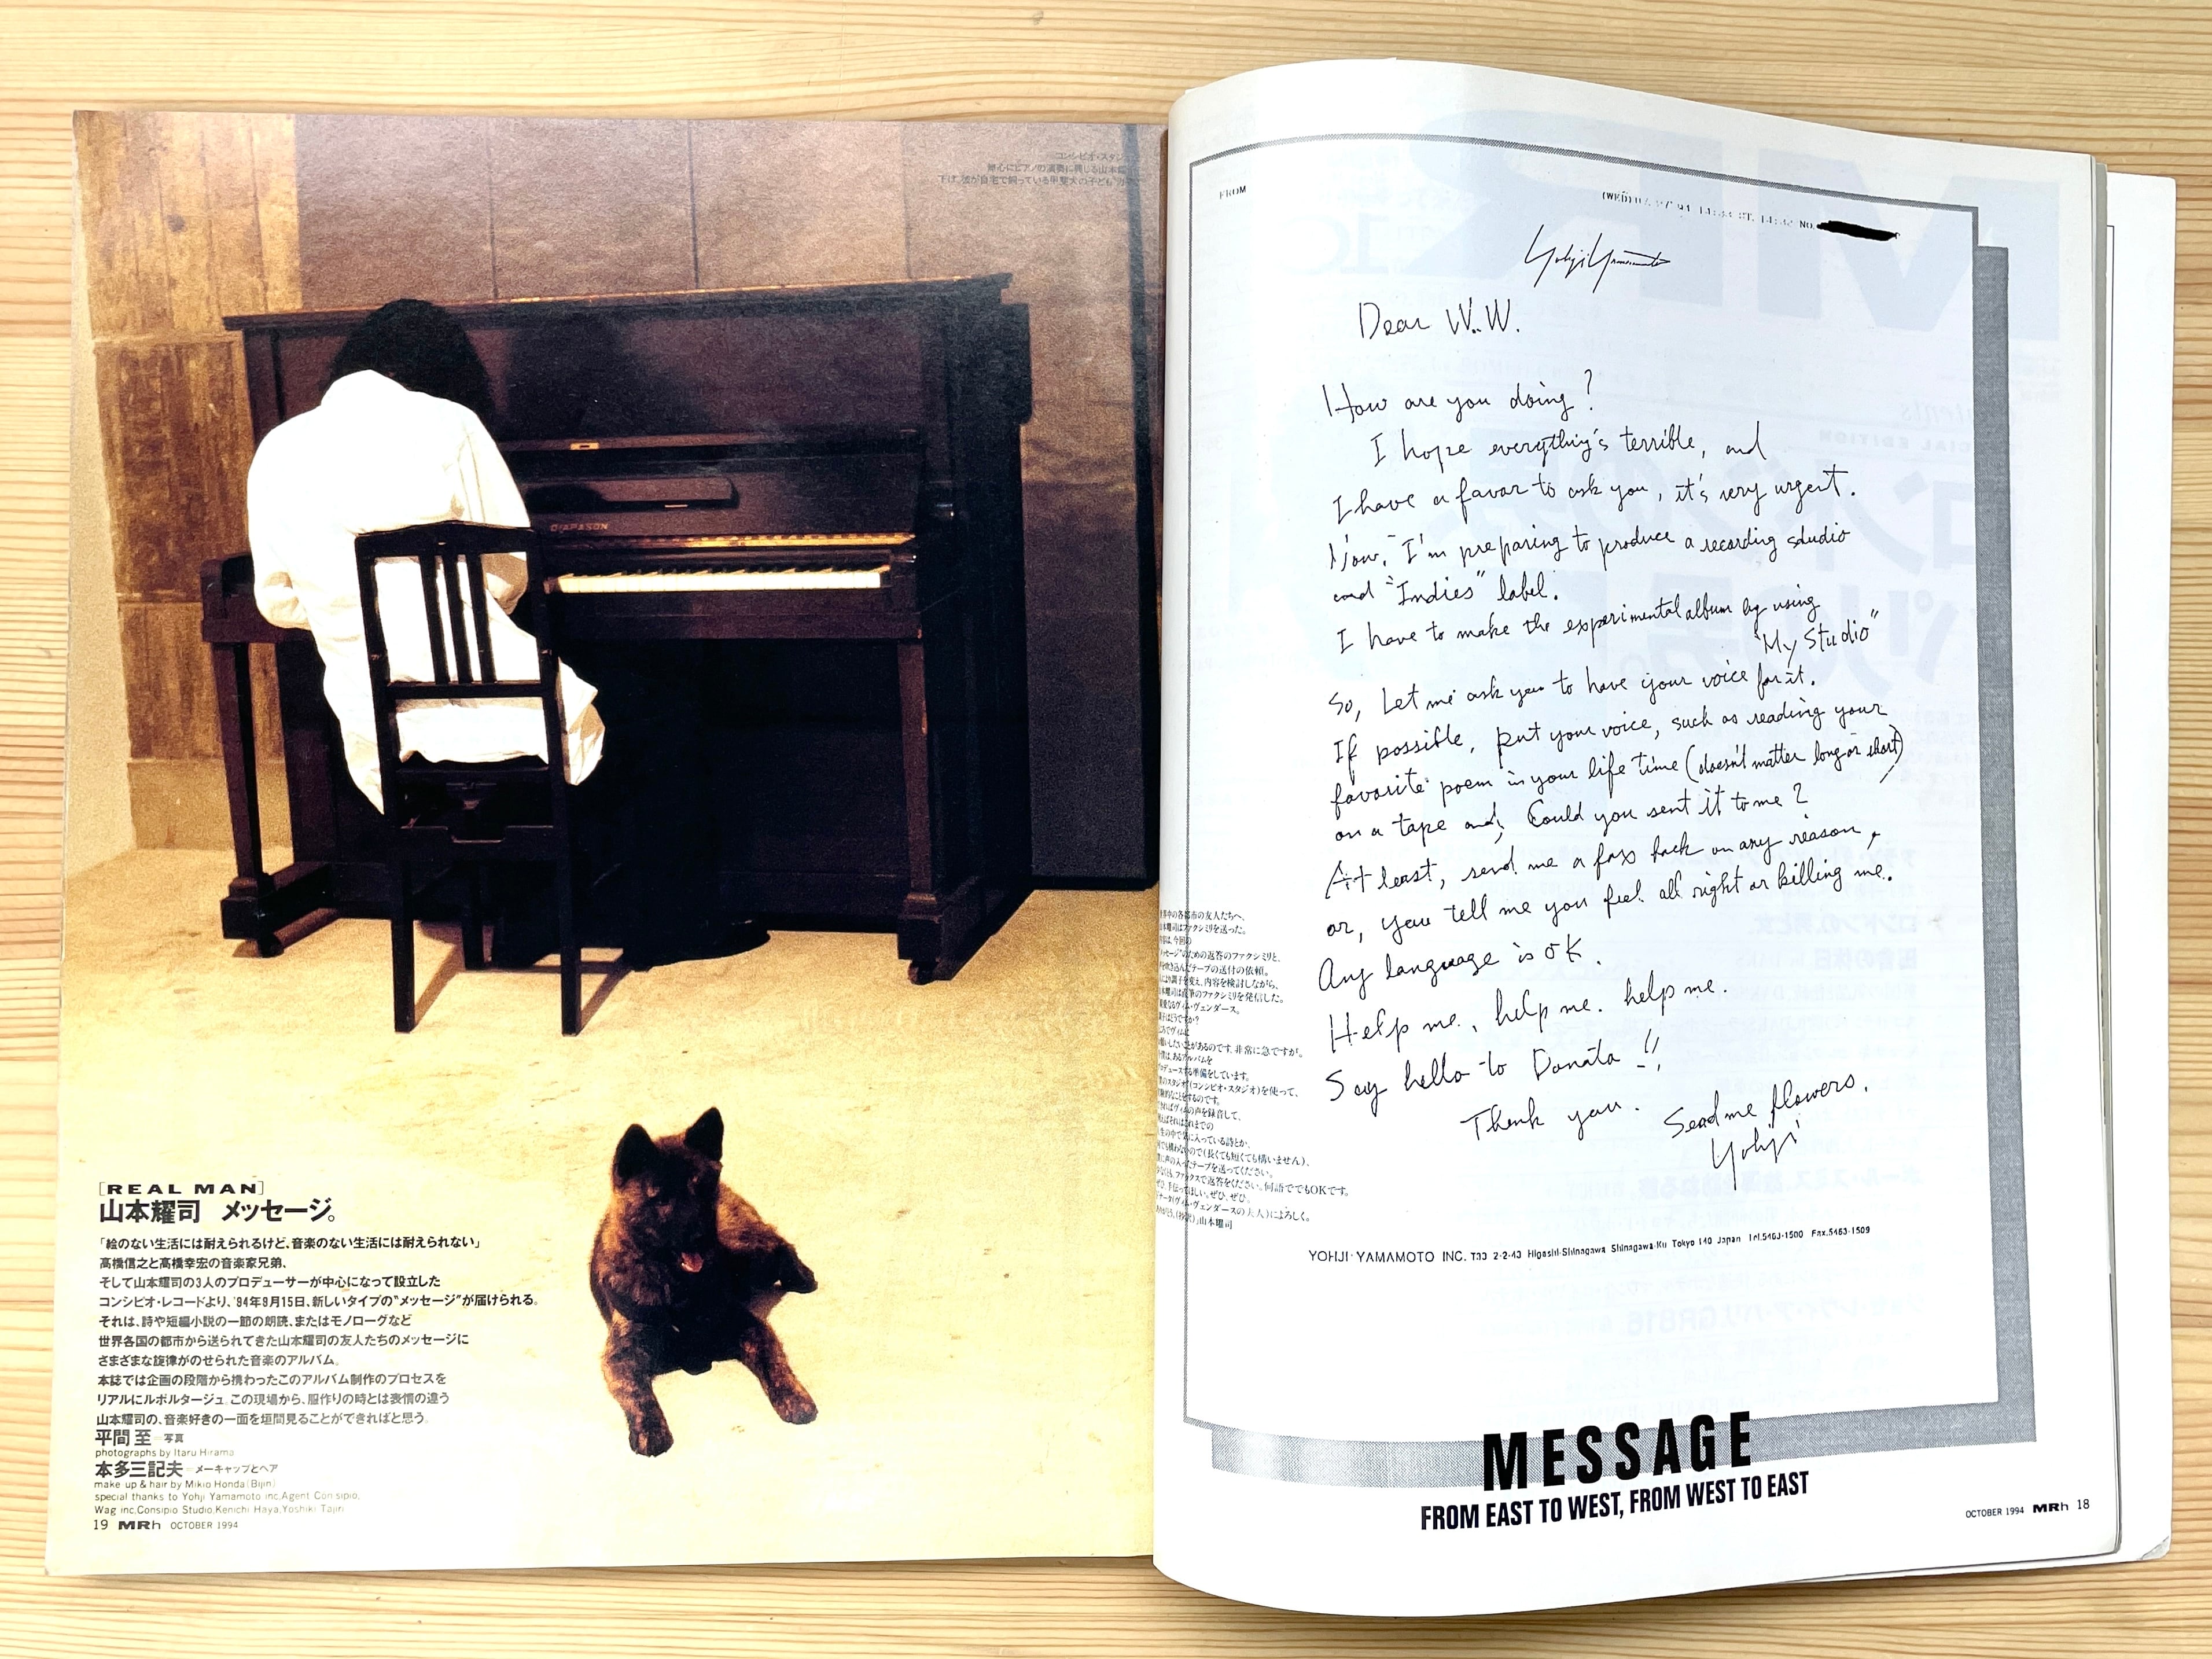 FROM
NO.
Yohji Yamamoto
Dear W.W.
How are you doing?
I hope everything's terrible, and
I have a favor to ask you, it's very urgent.
Now, I'm preparing to produce a recording studio
and "Indies" label.
I have to make the experimental album by using
"My Studio"
So, Let me ask you to have your voice for it.
If possible, put your voice, such as reading your
favorite poem in your life time (doesn't matter long or short)
on a tape and, Could you sent it to me?
At least, send me a fax back on any reason,
or, you tell me you feel all right or killing me.
Any language is OK.
Help me, help me. help me.
Say hello to Donata!!
Thank you. Send me flowers.
Yohji
YOHJI YAMAMOTO INC. T33 2-2-43 Higashi-Shinagawa Shinagawa-Ku Tokyo 140 Japan Tel.5463-1500 Fax.5463-1509
MESSAGE
FROM EAST TO WEST, FROM WEST TO EAST
OCTOBER 1994 MRh 18
中の各都市の友人たちへ、
本耀司はファクシミリを送った。
のための返答のファクシミリと、
を吹き込んだテープの送付の依頼。
調子を変え、内容を検討しながら、
本耀司は直筆のファクシミリを発信した。
ヴェンダース。
いしたいことがあるのです。非常に急ですが。
アルバムを
デュースする準備をしています。
スタジオ(コンシピオ・スタジオ)を使って、
の声を録音して、
の中で気に入っている詩とか、
(長くても短くても構いません)、
声の入ったテープを送ってください。
ファックスで返答をください。何語ででもOKです。
ほしい。ぜひ、ぜひ。
山本耀司
コンシピオ・スタジ
DIAPASON
[REAL MAN]
山本耀司 メッセージ。
「絵のない生活には耐えられるけど、音楽のない生活には耐えられない」
高橋信之と高橋幸宏の音楽家兄弟、
そして山本耀司の3人のプロデューサーが中心になって設立した
コンシピオ・レコードより、'94年9月15日、新しいタイプの"メッセージ"が届けられる。
それは、詩や短編小説の一節の朗読、またはモノローグなど
世界各国の都市から送られてきた山本耀司の友人たちのメッセージに
さまざまな旋律がのせられた音楽のアルバム。
本誌では企画の段階から携わったこのアルバム制作のプロセスを
リアルにルポルタージュ。この現場から、服作りの時とは表情の違う
山本耀司の、音楽好きの一面を垣間見ることができればと思う。
平間 至=写真
photographs by Itaru Hirama
本多三記夫=メーキャップとヘア
make up & hair by Mikio Honda(Bijin)
special thanks to Yohji Yamamoto inc,Agent Consipio,
Wag inc,Consipio Studio,Kenichi Haya,Yoshiki Tajiri
19 MRh OCTOBER 1994